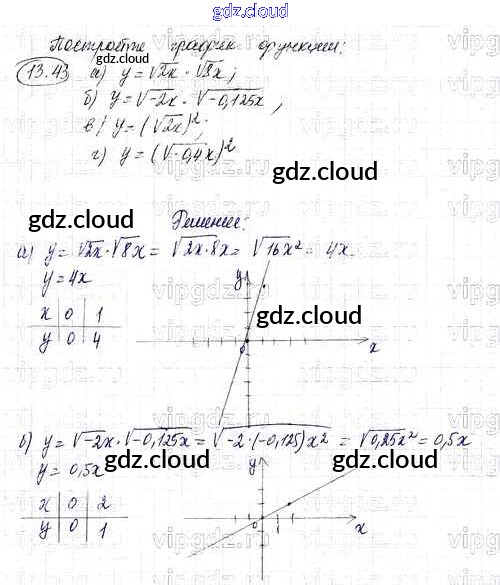 gdz.cloud
Постройте график функции:
13.43 а) y = √2x · √8x;
gdz.cloud
б) y = √-2x · √-0,125x;
в) y = (√2x)²;
г) y = (√-0,4x)²
gdz.cloud
gdz.cloud Решение:
а) y = √2x · √8x = √2x·8x = √16x² = 4x.
y = 4x
x 0 1
y 0 4
y
0
x
gdz.cloud
б) y = √-2x · √-0,125x = √-2·(-0,125)x² = √0,25x² = 0,5x
gdz.cloud gdz.cloud
y = 0,5x
x 0 2
y 0 1
y
0 1
x